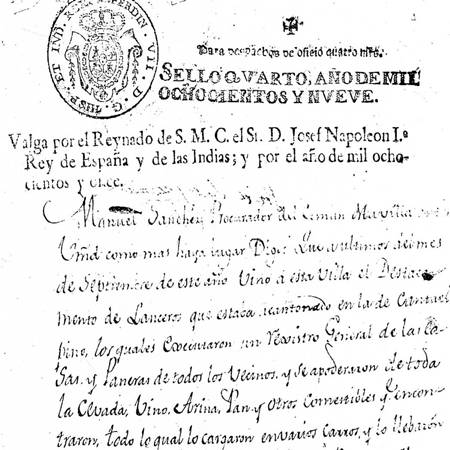 HISP. ET IND. R. FERDIN. VII. D. G.
Para despachos de oficio quatro mrs.
SELLO QVARTO, AÑO DE MIL
OCHOCIENTOS Y NVEVE.
Valga por el Reynado de S. M. C. el Sr. D. Josef Napoleon I.º
Rey de España y de las Indias; y por el año de mil ocho-
cientos y once.
Manuel Sanchez Procurador del Comun
Vmd como mas haga lugar Digo: Que a ultimos del mes
de Septiembre de este año vino a esta Villa el Destaca
mento de Lanceros que estaba acantonado en la de Cantael
pino, los quales Executaron un Registro General de las Ca
sas, y Paneras de todos los Vecinos, y se apoderaron de toda
la Cevada, Vino, Arina, Pan y otros Comestibles q.e encon
traron, todo lo qual lo cargaron en varios Carros, y lo llebaron